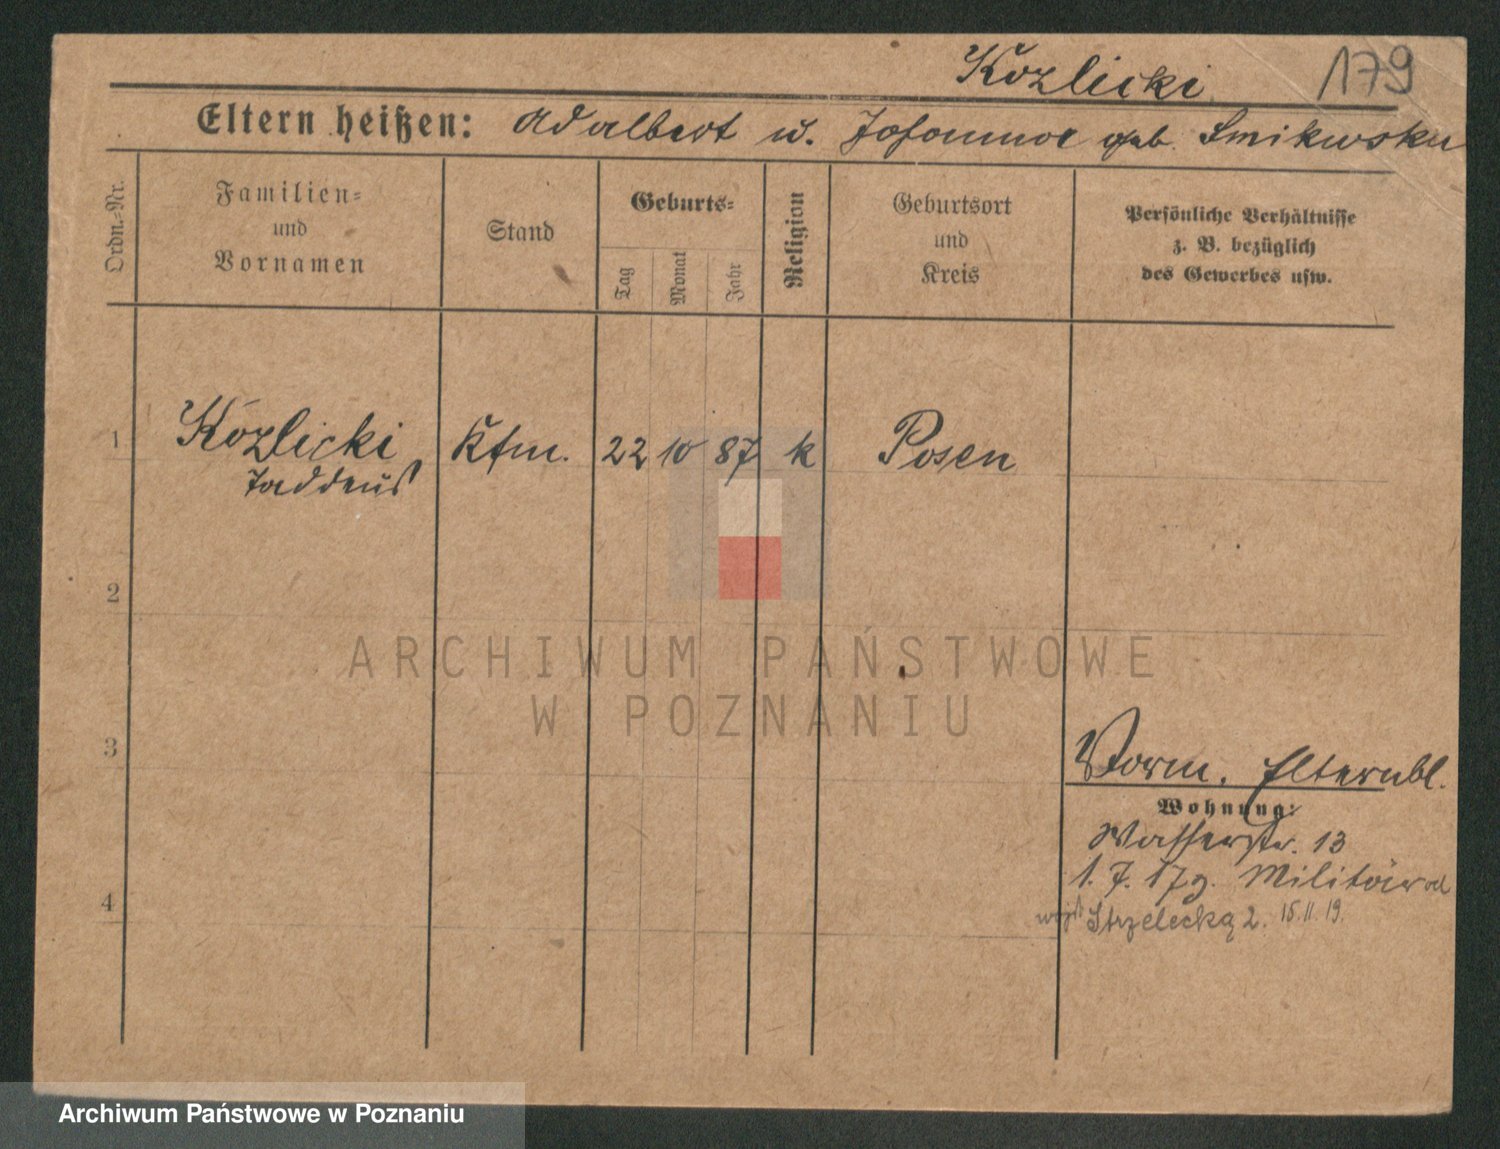 Kozlicki 179
Eltern heißen: Adalbert u. Johanna geb.
Ordn.-Nr.
Familien-
und
Vornamen
Stand
Geburts-
Tag
Monat
Jahr
Religion
Geburtsort
und
Kreis
Persönliche Verhältnisse
z. B. bezüglich
des Gewerbes usw.
1 Kozlicki Kfm. 22 10 87 k Posen
Taddeus
2
3
Vorm. Elternbl.
Wohnung:
Wasserstr. 13
1. 7. 17 g. Militär
4
Strzelecka 2. 15.11.19.
ARCHIWUM PAŃSTWOWE
W POZNANIU
Archiwum Państwowe w Poznaniu